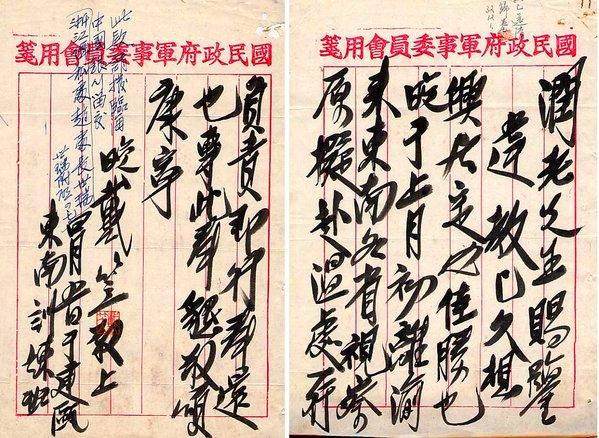 國民政府軍事委員會用箋
潤老先生賜鑒
違教已久想
興居定必佳勝也
晚于上月初離渝
來東南各省視察
原擬赴溫處一行
國民政府軍事委員會用箋
負責即行奉還
也專此奉懇敬頌
康寧
晚戴笠敬上
四月 日于建甌
東南訓練班
中國銀行
浙江 處趙處長世瑞